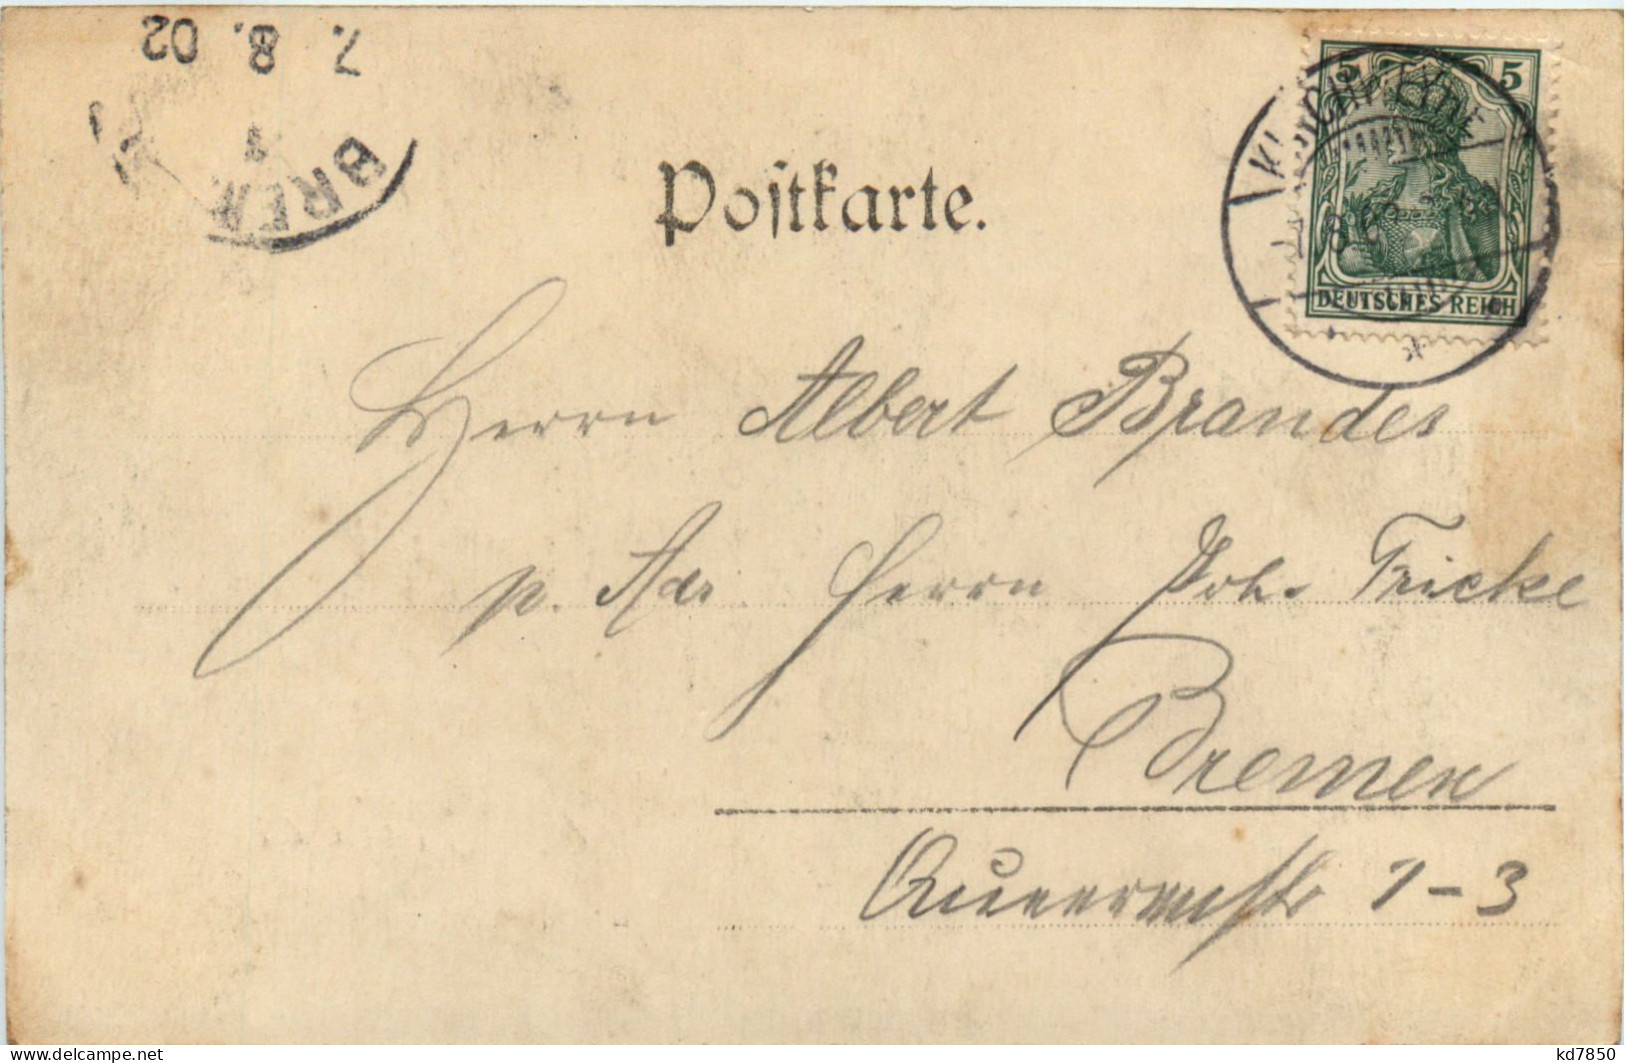 7. 8. 02
BREM
1
5 5
DEUTSCHES REICH
Postkarte.
Herrn Albert Brandes
p. Adr. Herrn Joh. Fricke
Bremen
1-3
kd7850